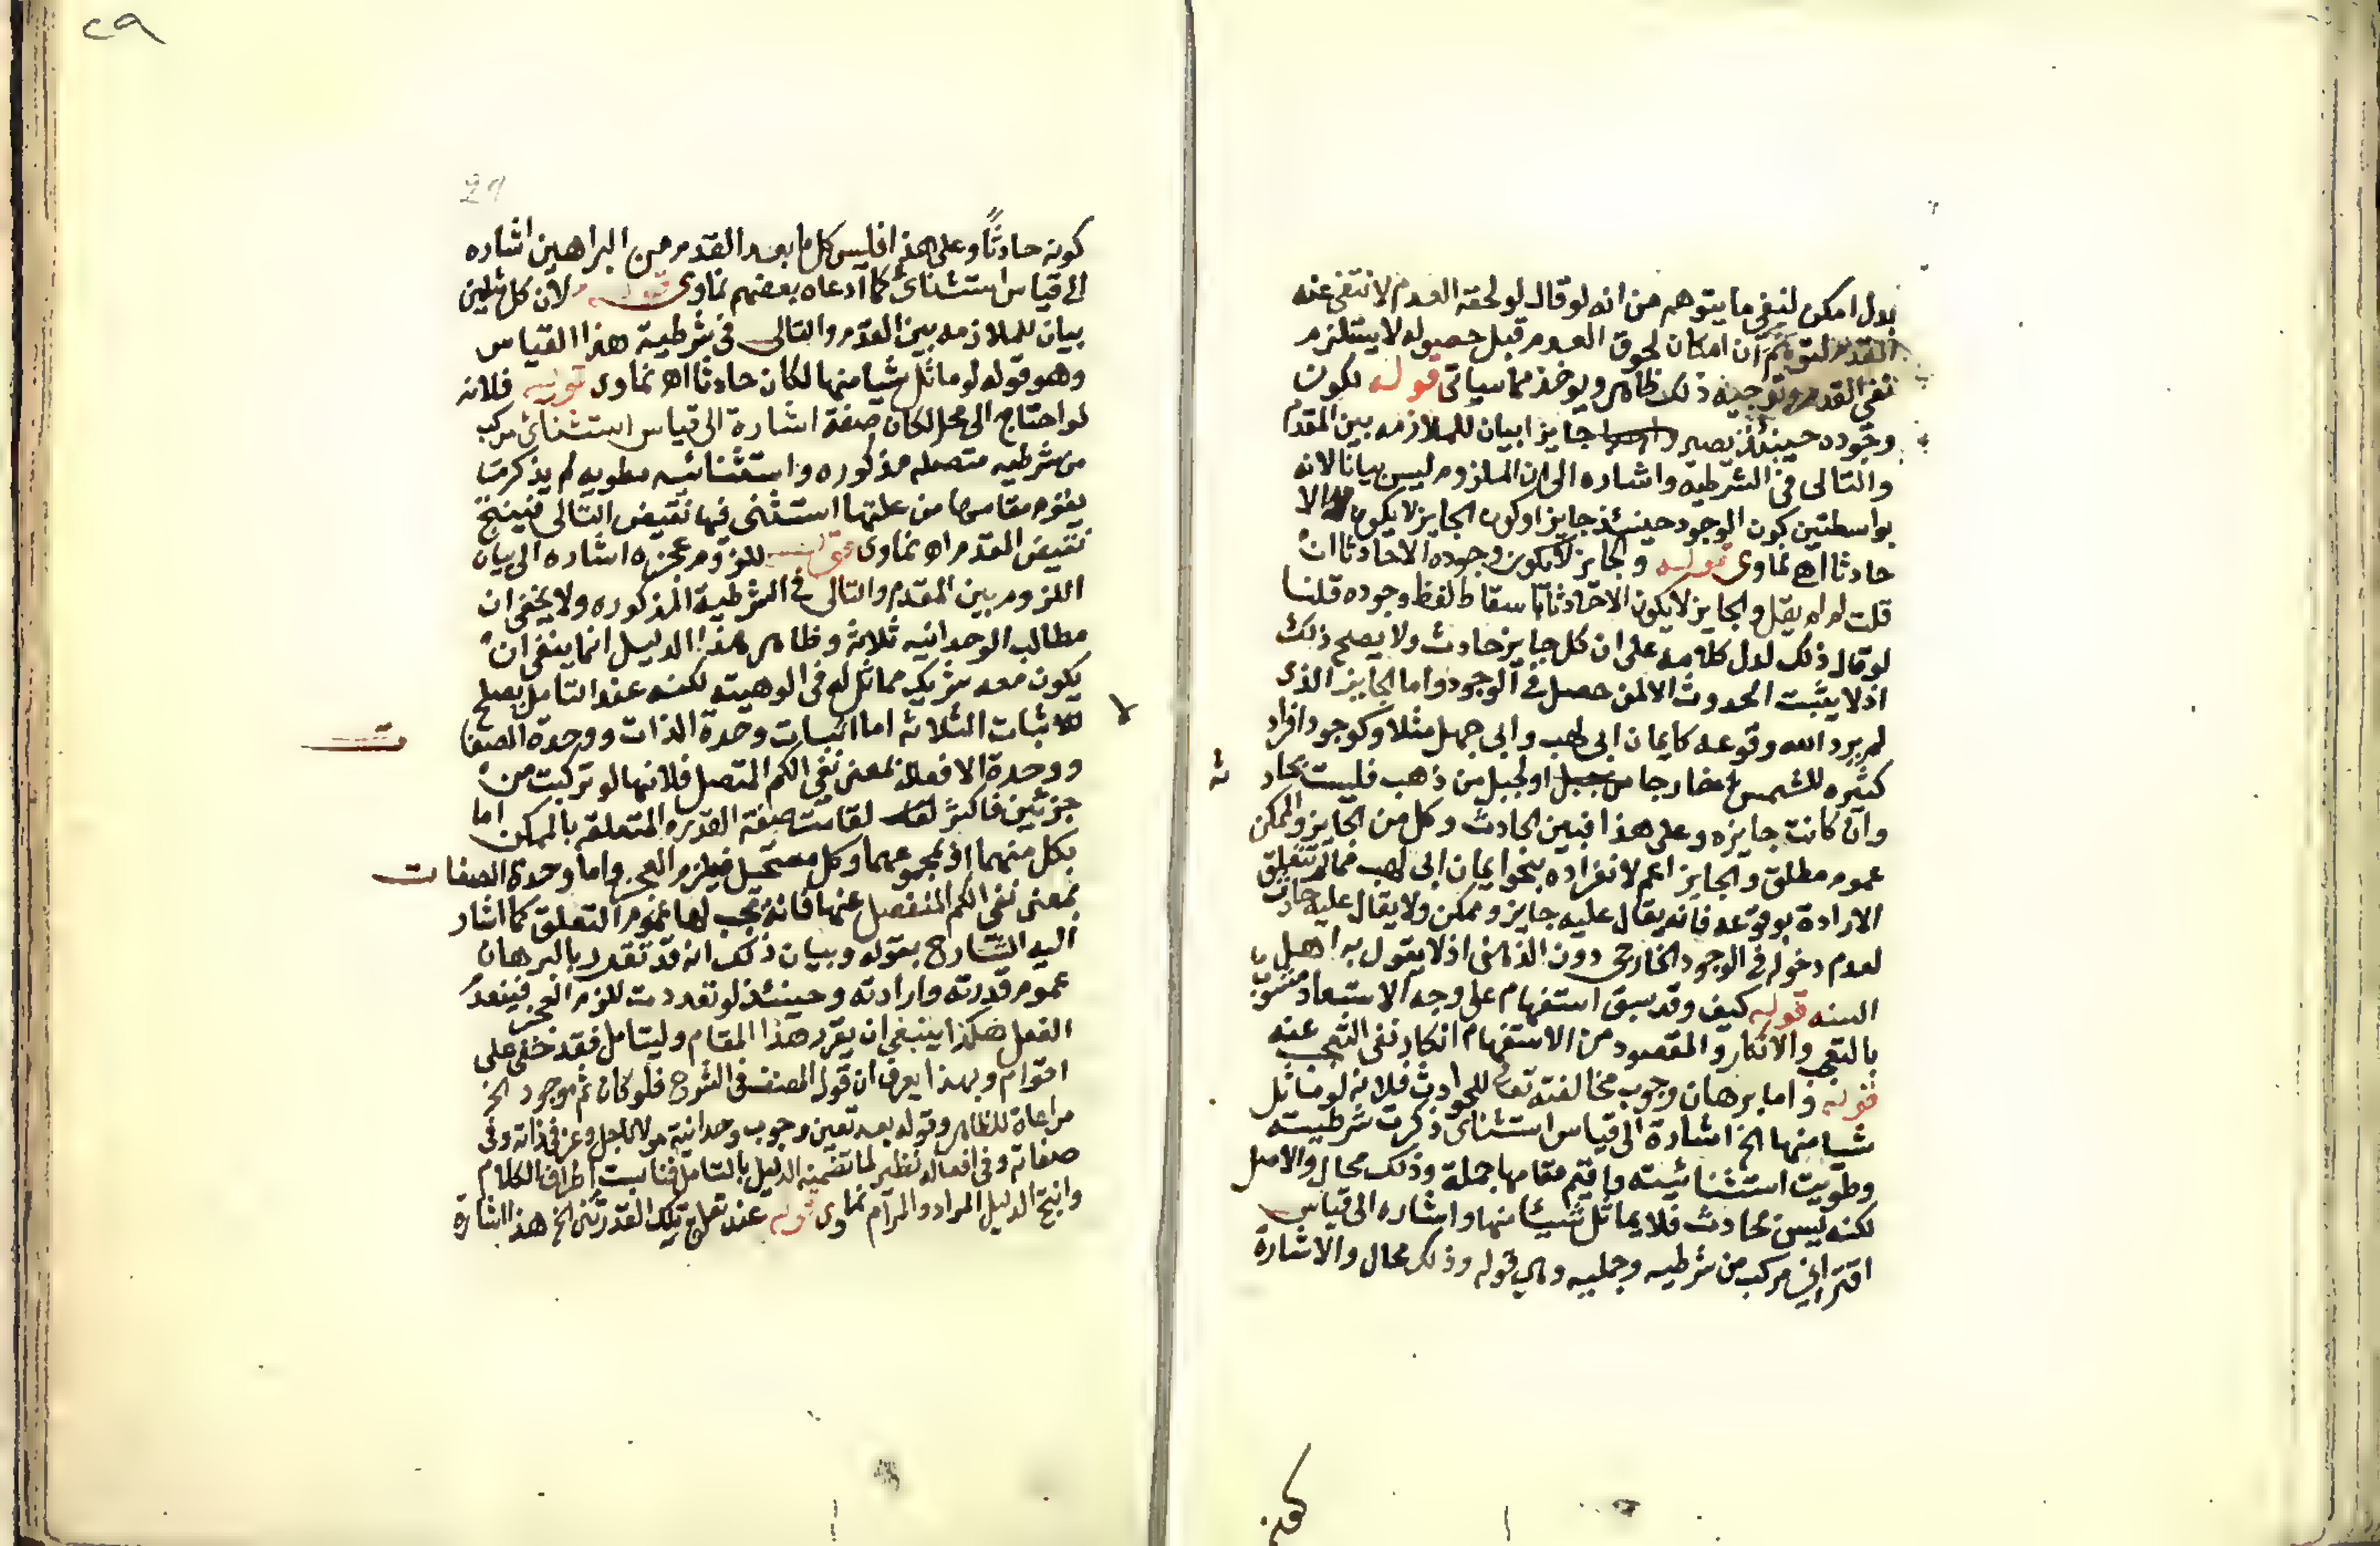 بدل امكن لنفي ما يتوهم من انه لو قال لو لحقه العدم لانتفى عنه
القدم لتوهم ان امكان لحوق العدم قبل حصوله لا يستلزم
نفي القدم وتوجيه ذلك ظاهر ويوخذ مما سياتي قوله لكون
وجوده حينئذ يصير جايزا بيان للملازمه بين المقدم
والتالى في الشرطيه واشاره الى ان الملزوم ليس بيانا لانه
بواسطتين كون الوجود حينئذ جايزا وكون الجايز لا يكون الا
حادثا اهـ نماوى قوله والجايز لا يكون وجوده الا حادثا ان
قلت لم لم يقل والجايز لا يكون الا حادثا باسقاط لفظ وجوده قلنا
لو قال ذلك لدل كلامه على ان كل جايز حادث ولا يصح ذلك
اذ لا يثبت الحدوث الا لمن حصل في الوجود واما الجايز الذى
لم يرد الله وقوعه كايمان ابى لهب وابى جهل مثلا وكوجود افراد
كثيره للشمس خارجا او لجبل من ذهب فليست بحاد ثه
وان كانت جايزه وعلى هذا فبين الحادث وكل من الجايز والممكن
عموم مطلق والجايز اعم لانفراده بنحو ايمان ابى لهب فما لم تتعلق
الارادة بوقوعه فانه يقال عليه جايز وممكن ولا يقال عليه حادث
لعدم دخوله في الوجود الخارجى دون الذهنى اذ لا يقول به اهل
السنه قوله كيف وقد سبق استفهام على وجه الاستبعاد مشوب
بالتعجب والانكار والمقصود من الاستفهام انكار نفى التعجب عنه
قوله واما برهان وجوب مخالفته تعالى للحوادث فلانه لو ماثل
شيا منها الخ اشارة الى قياس استثناى ذكرت شرطيته
وطويت استثنائيته واقيم مقامها جملة وذلك محال والاصل
لكنه ليس بحادث فلا يماثل شيئا منها واشاره الى قياس
اقترانى مركب من شرطيه وحمليه وهي قوله وذلك محال والاشارة
كونه
٢٩
29
كونه حادثا وعلى هذا فليس كل ما بعد القدم من البراهين اشاره
الى قياس استثناى كما ادعاه بعضهم نماوى قوله لان كل مثلين
بيان للملازمه بين المقدم والتالى فى شرطية هذا القياس
وهو قوله لو ماثل شيا منها لكان حادثا اهـ نماوى قوله فلانه
لو احتاج الى محل لكان صفة اشارة الى قياس استثنائى مركب
من شرطيه متصله مذكوره واستثنائيه مطويه لم يذكر ما
يقوم مقامها من علتها استثنى فيها نقيض التالى فينتج
نقيض المقدم اهـ نماوى قوله للزوم عجزه اشاره الى بيان
اللزوم بين المقدم والتالى في الشرطية المذكوره ولا يخفى ان
مطالب الوحدانيه ثلاثة وظاهر هذا الدليل انما ينفى ان
يكون معه شريك مماثل له فى الوهيته لكنه عند التامل يصلح
لاثبات الثلاثه اما اثبات وحدة الذات ووحدة الصفات
ووحدة الافعال بمعنى نفى الكم المتصل فلانها لو تركبت من
جزئين فاكثر لقامت صفة القدره المتعلقه بالممكن اما
بكل منهما او بمجموعهما وكل مستحيل فيلزم العجز واما وحدة الصفات
بمعنى نفى الكم المنفصل عنها فانه يجب لها عموم التعلق كما اشار
اليه الشارح بقوله وبيان ذلك انه قد تقرر بالبرهان
عموم قدرته وارادته وحينئذ لو تعددت للزم العجز فينعدم
الفعل هكذا ينبغى ان يقرر هذا المقام وليتامل فقد خفى على
اقوام وبهذا يعرف ان قول المصنف فى الشرح فلو كان ثم موجود الخ
مراعاة للظاهر وقوله بعد تعين وجوب وحدانية مولانا جل وعز فى ذاته وفى
صفاته وفى افعاله نظير لما تضمنه الدليل بالتامل فتناسبت اطراف الكلام
وانتج الدليل المراد والمرام نماوى قوله عند تعلق تلك القدرتين الخ هذا اشارة